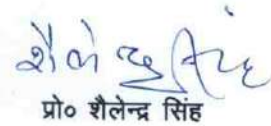 शैलेन्द्र सिंह
प्रो० शैलेन्द्र सिंह